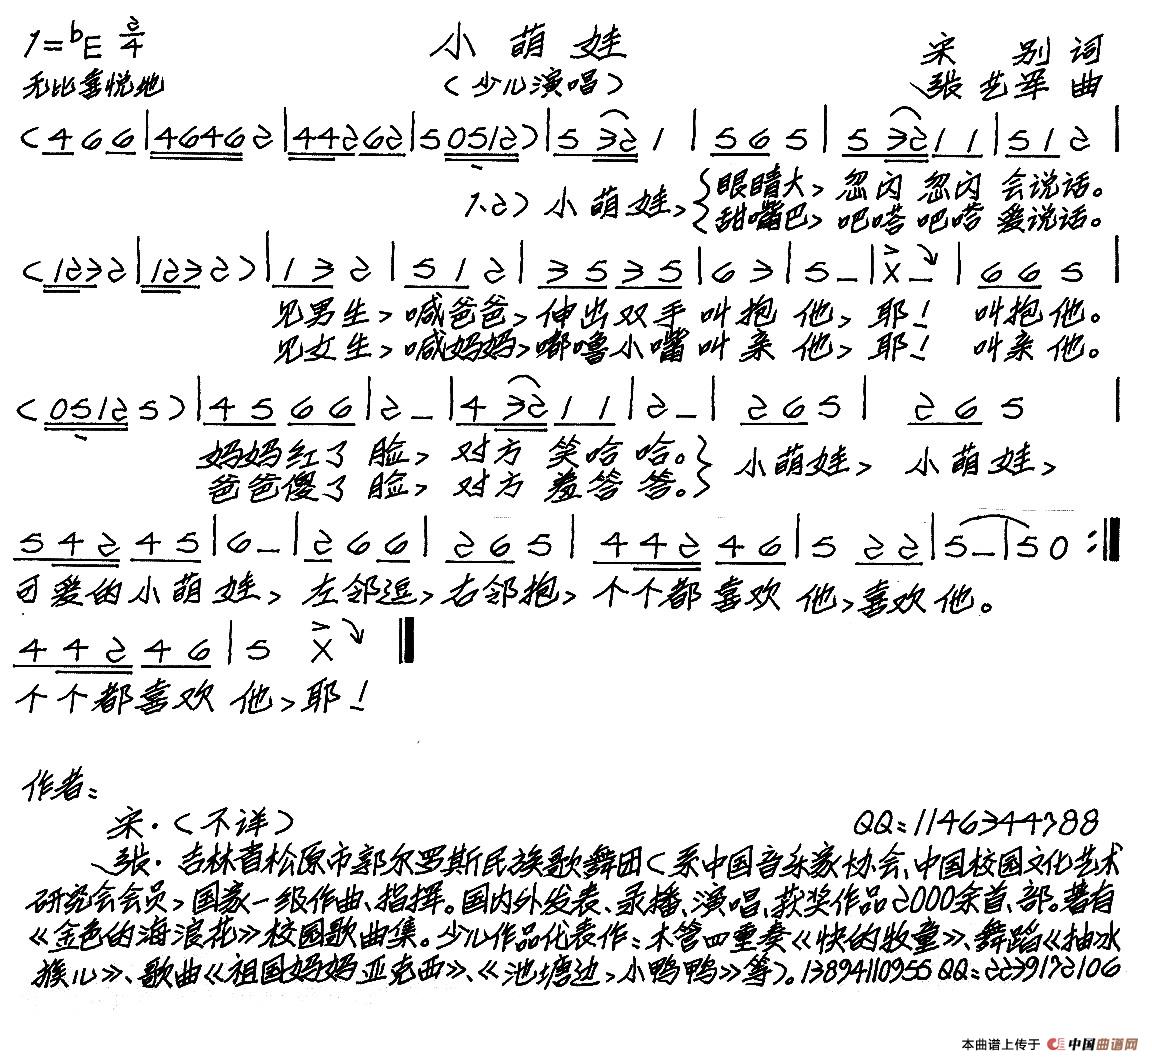 1=♭E 2/4 小萌娃 宋 别 词
无比喜悦地 （少儿演唱） 张艺军 曲
（4 6 6 | 4 6 4 6 2 | 4 4 2 6 2 | 5 0 5 1 2）| 5 3 2 1 | 5 6 5 | 5 3 2 1 1 | 5 1 2 |
眼睛大，忽闪 忽闪 会说话。
1.2）小萌娃，
甜嘴巴，吧嗒 吧嗒 爱说话。
（1 2 3 2 | 1 2 3 2）| 1 3 2 | 5 1 2 | 3 5 3 5 | 6 3 | 5 – | X – | 6 6 5 |
见男生，喊爸爸，伸出双手叫抱 他，耶！ 叫抱他。
见女生，喊妈妈，嘟噜小嘴叫亲 他，耶！ 叫亲他。
（0 5 1 2 5）| 4 5 6 6 | 2 – | 4 3 2 1 1 | 2 – | 2 6 5 | 2 6 5 |
妈妈红了 脸，对方 笑哈 哈。 小萌娃，小萌娃，
爸爸傻了 脸，对方 羞答 答。
5 4 2 4 5 | 6 – | 2 6 6 | 2 6 5 | 4 4 2 4 6 | 5 2 2 | 5 – | 5 0 :‖
可爱的小萌娃，左邻逗，右邻抱，个个都喜欢 他，喜欢他。
4 4 2 4 6 | 5 X ‖
个个都喜欢 他，耶！
作者：
宋·（不详） QQ：1146344788
张·吉林省松原市郭尔罗斯民族歌舞团（系中国音乐家协会、中国校园文化艺术
研究会会员，国家一级作曲、指挥。国内外发表、录播、演唱、获奖作品2000余首、部。著有
《金色的海浪花》校园歌曲集。少儿作品代表作：木管四重奏《快的牧童》、舞蹈《抽冰
猴儿》、歌曲《祖国妈妈亚克西》、《池塘边，小鸭鸭》等）。13894110955 QQ：2239172106
本曲谱上传于 中国曲谱网